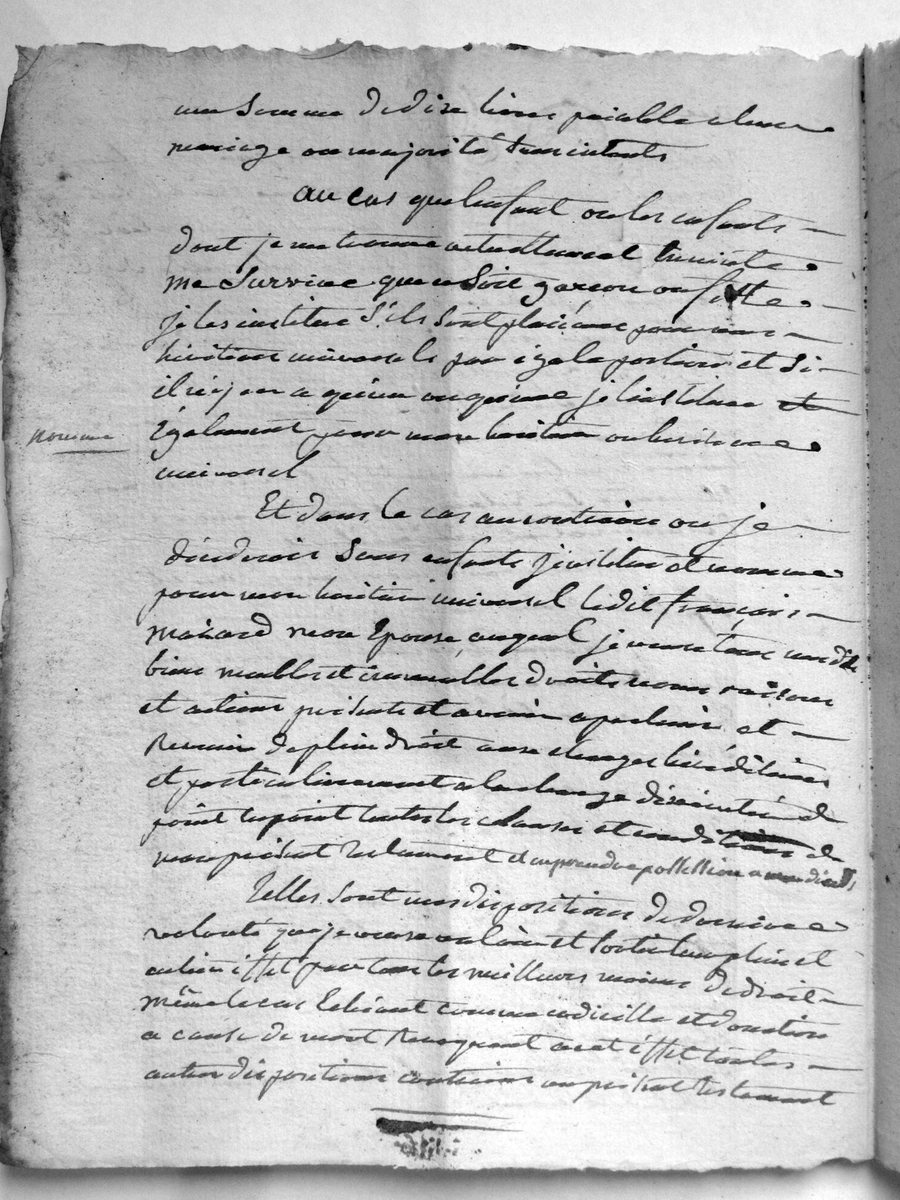 une somme de dix livres païable a leur
mariage ou majorité sans interets
au cas que lenfant ou les enfants
dont je me trouve actuellement enceinte
me survive que ce soit garcon ou fille
je les institue s'ils sont plusieurs pour mes
héritiers universels par égale portion et si
il n'y en a qu'un ou qu'une je l'institue et
nomme
Également pour mon héritier ou heritiere
universel
Et dans le cas au contraire ou je
decederois sans enfants j'institue et nomme
pour mon héritier universel ledit françois
mon Epoux auquel je veux tous mesdits
biens meubles et immeubles droits noms raisons
et actions présents et avenir apartenir et
Revenir de plein droit aux charges héréditaires
et particulierement a la charge d'exécuter de
point en point toutes les clauses et conditions de
mon présent testament et en prendre possession a mon décès
Telles sont mes dispositions de derniere
volonté que je veux valoir et sortir leur plein et
entier effet par tous les meilleurs moiens de droit
même le cas Echéant comme codicille et donation
a cause de mort Revoquant a cet effet toutes
autres dispositions contraires au présent testament